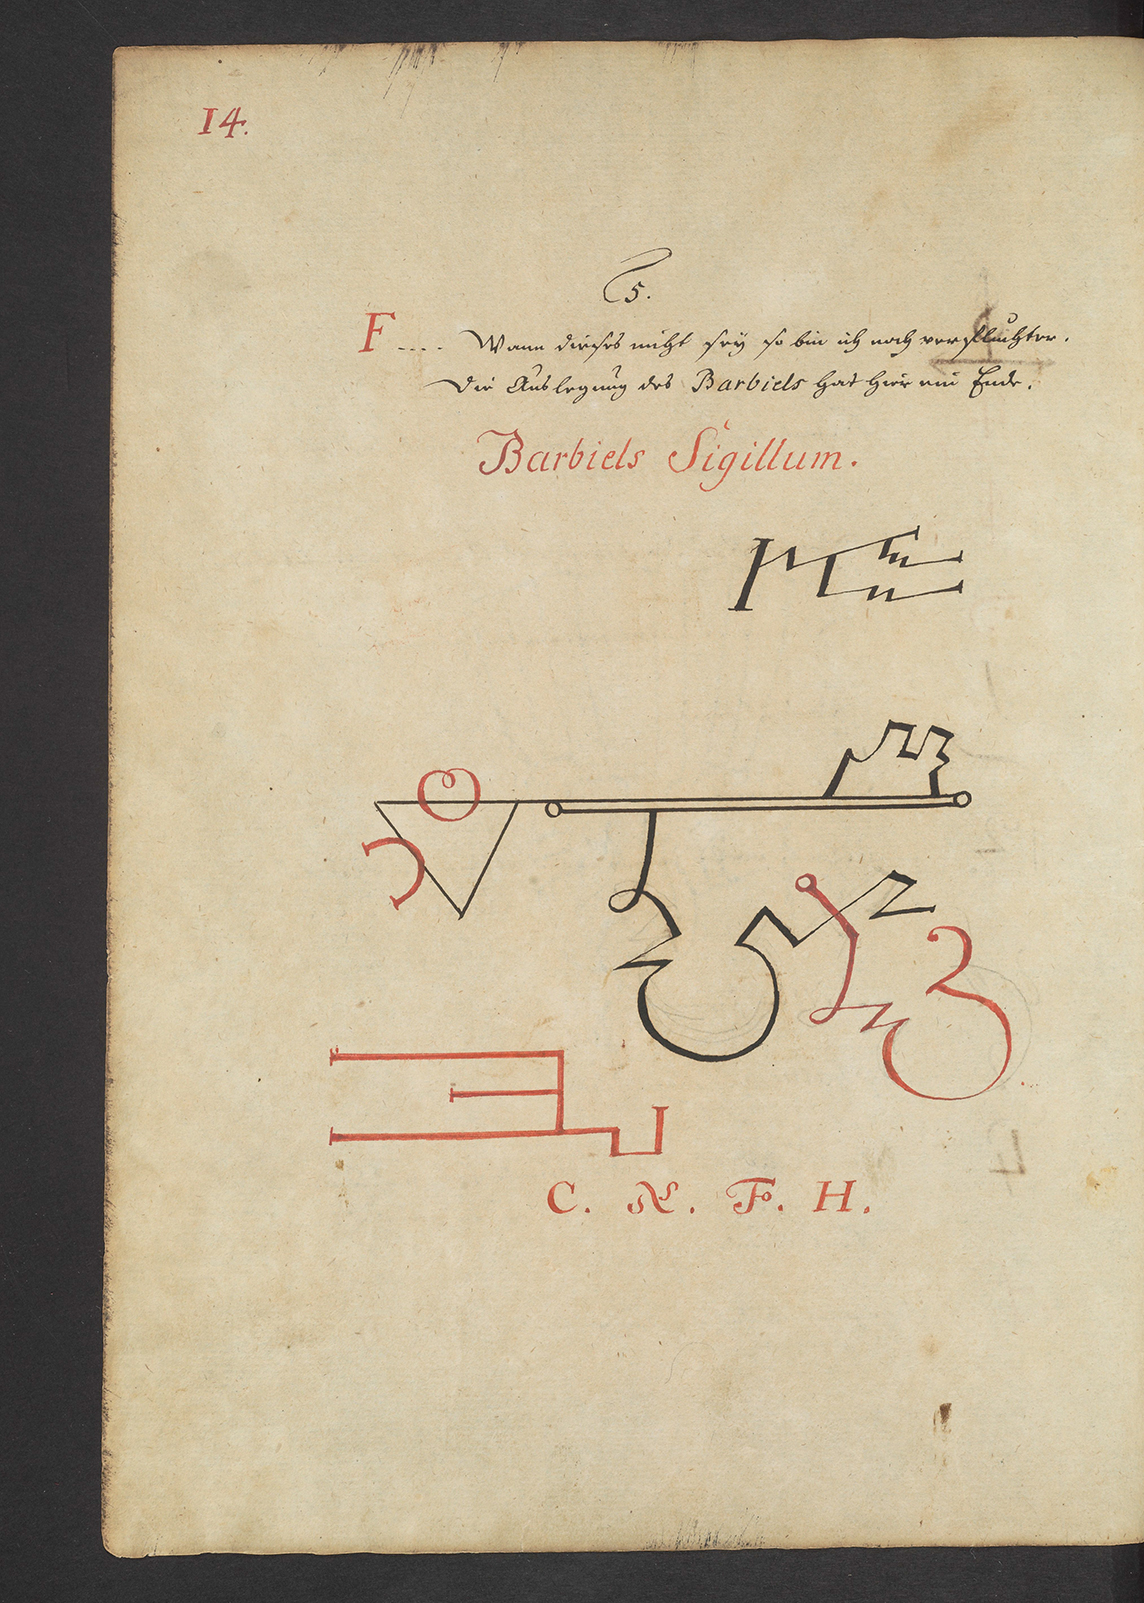 14.
5.
F.... Wann dieses nicht sey so bin ich noch verfluchter.
Die Auslegung des Barbiels hat hier ein Ende.
Barbiels Sigillum.
C. N. F. H.